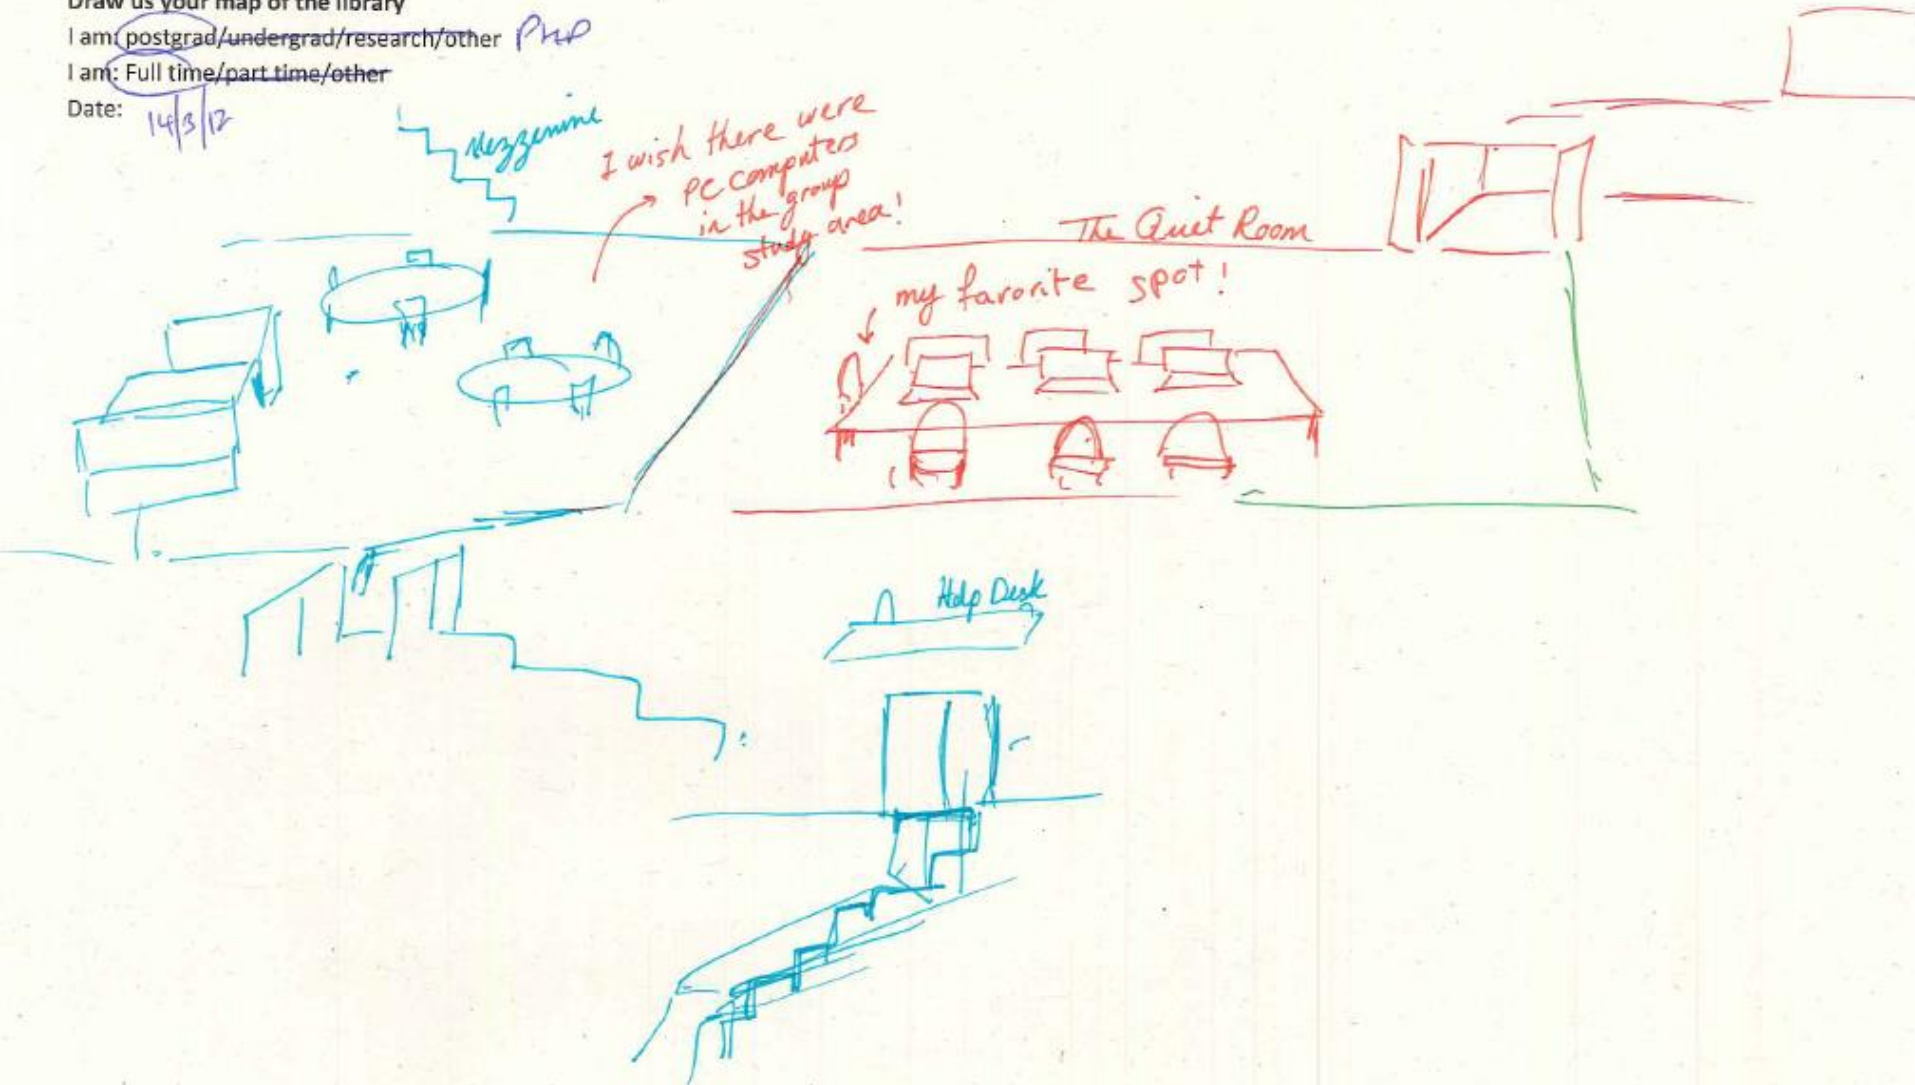 Draw us your map of the library
I am: postgrad/undergrad/research/other PhD
I am: Full time/part time/other
Date: 14/3/12
Mezzanine
I wish there were
PC computers
in the group
study area!
The Quiet Room
my favorite spot!
Help Desk